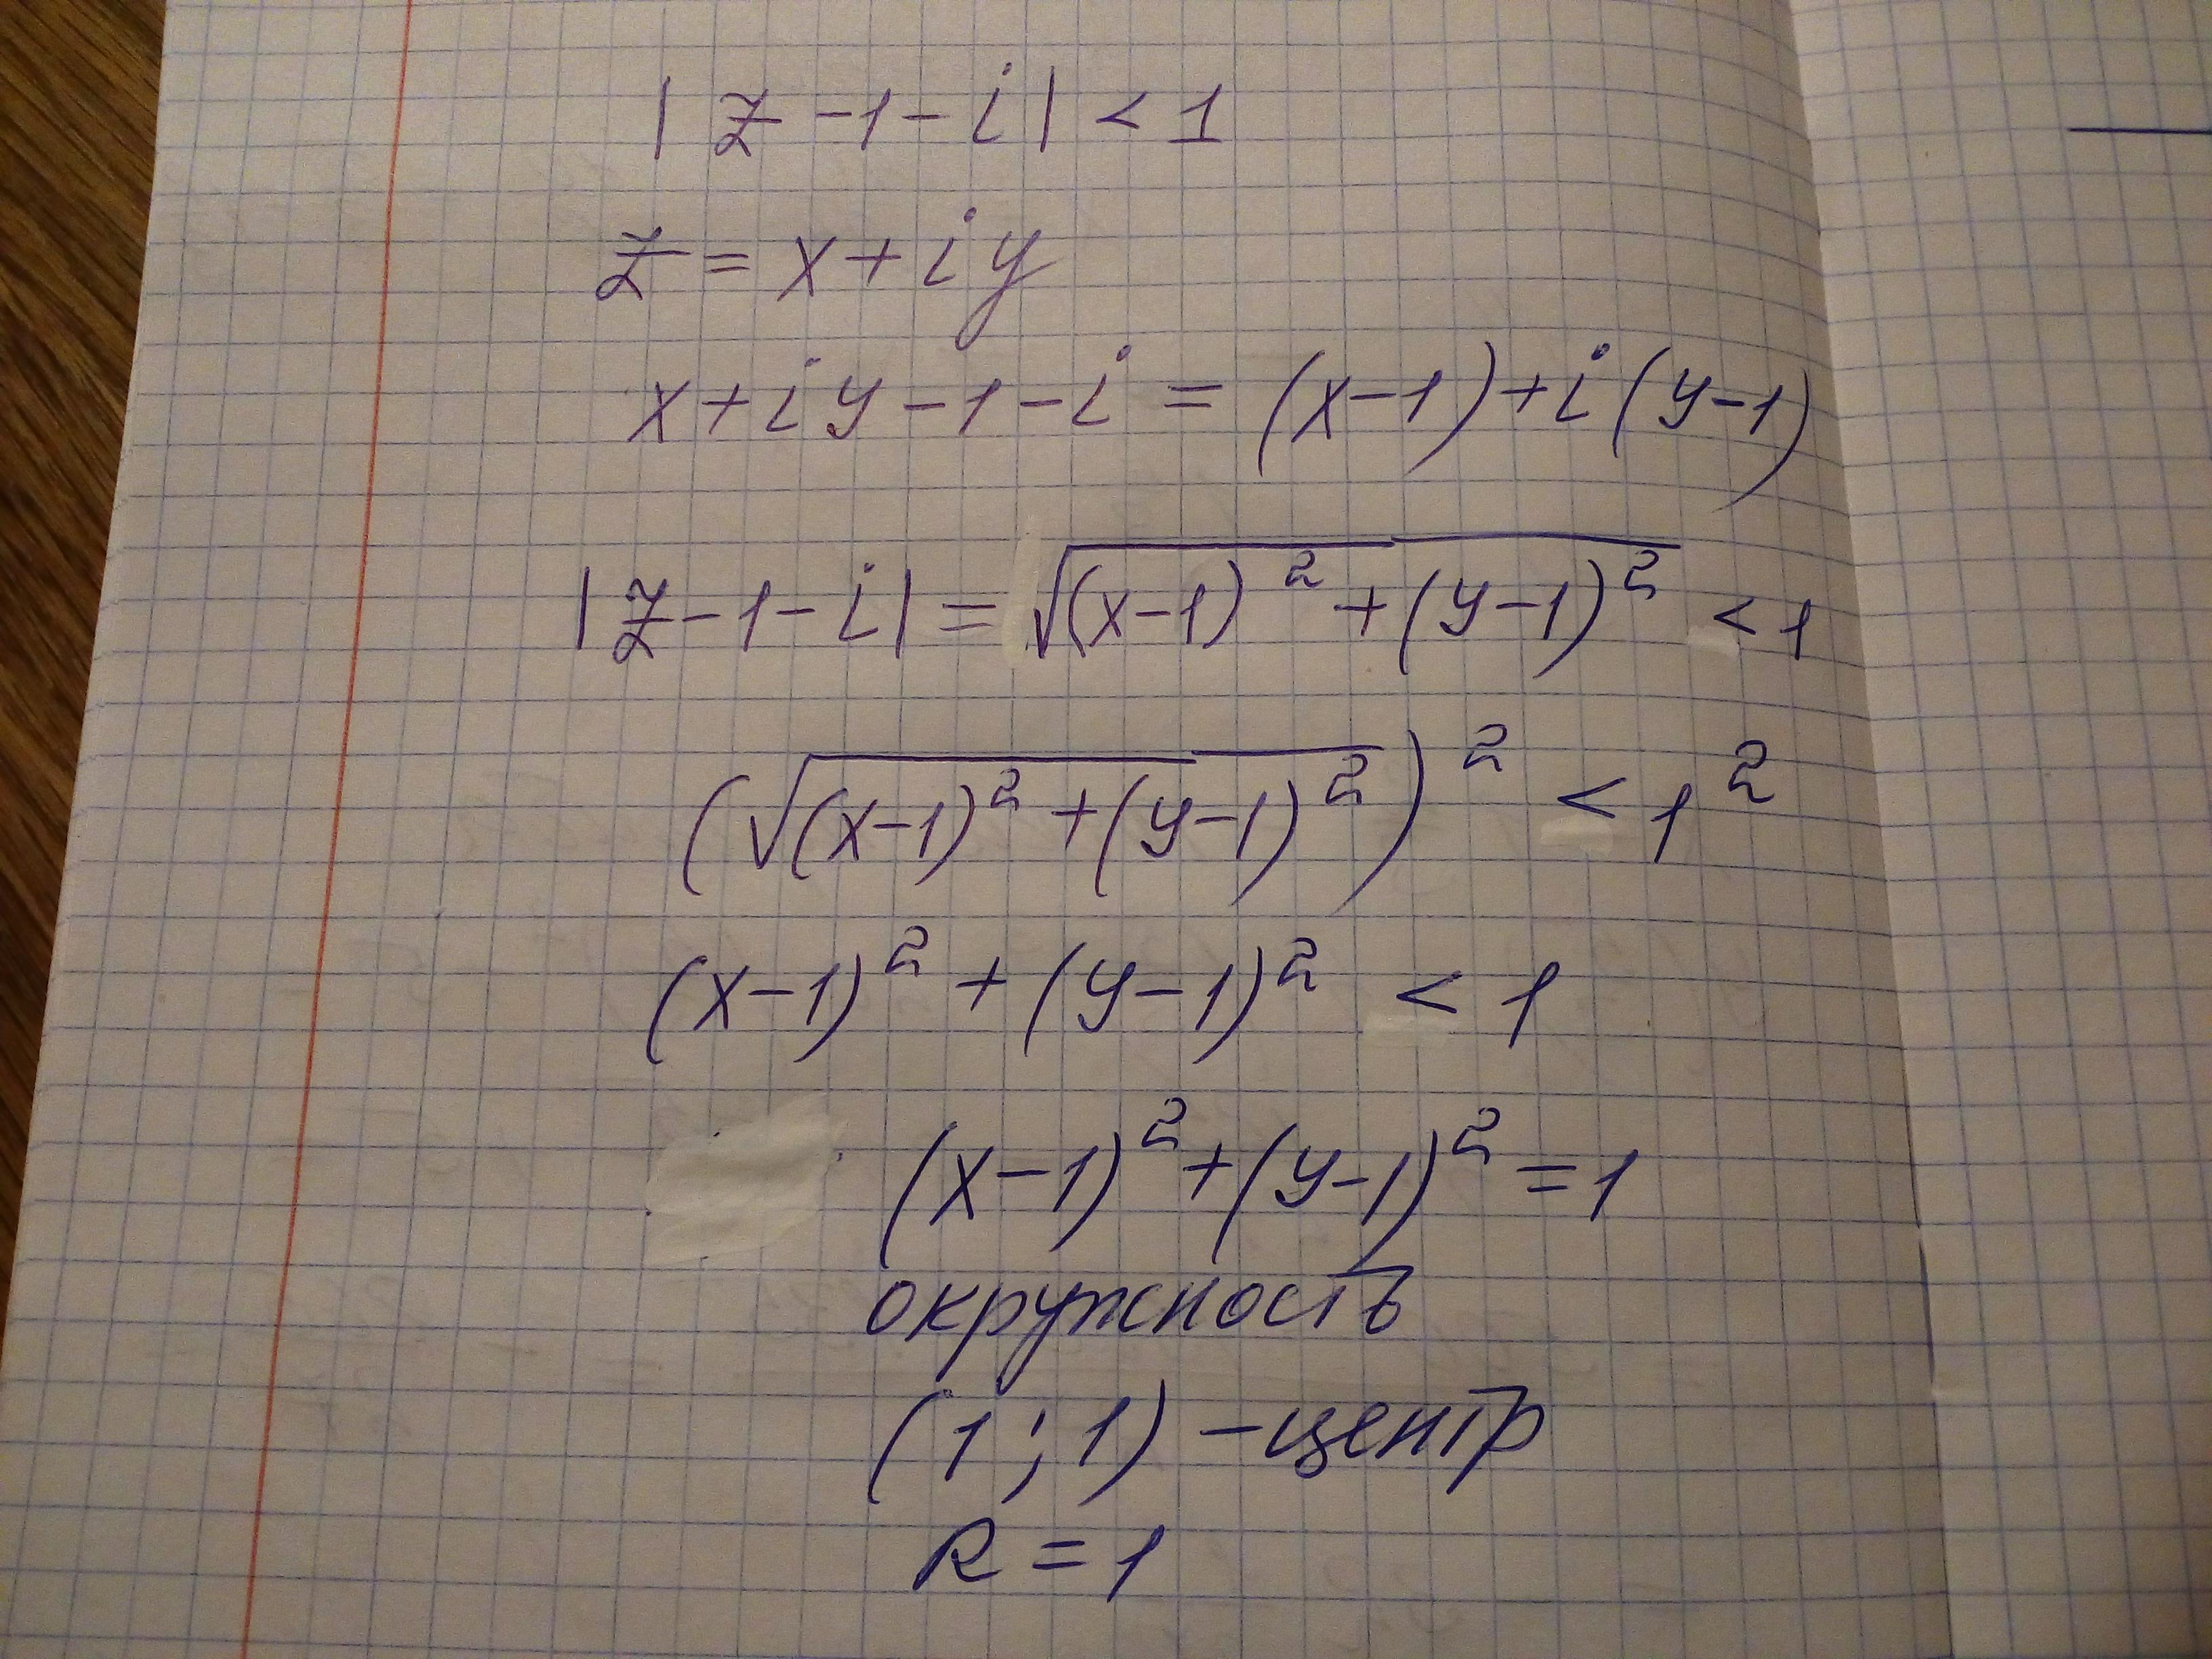 |z-1-i|<1
z=x+iy
x+iy-1-i=(x-1)+i(y-1)
|z-1-i|=√(x-1)²+(y-1)²<1
(√(x-1)²+(y-1)²)²<1²
(x-1)²+(y-1)²<1
(x-1)²+(y-1)²=1
окружность
(1;1)-центр
R=1